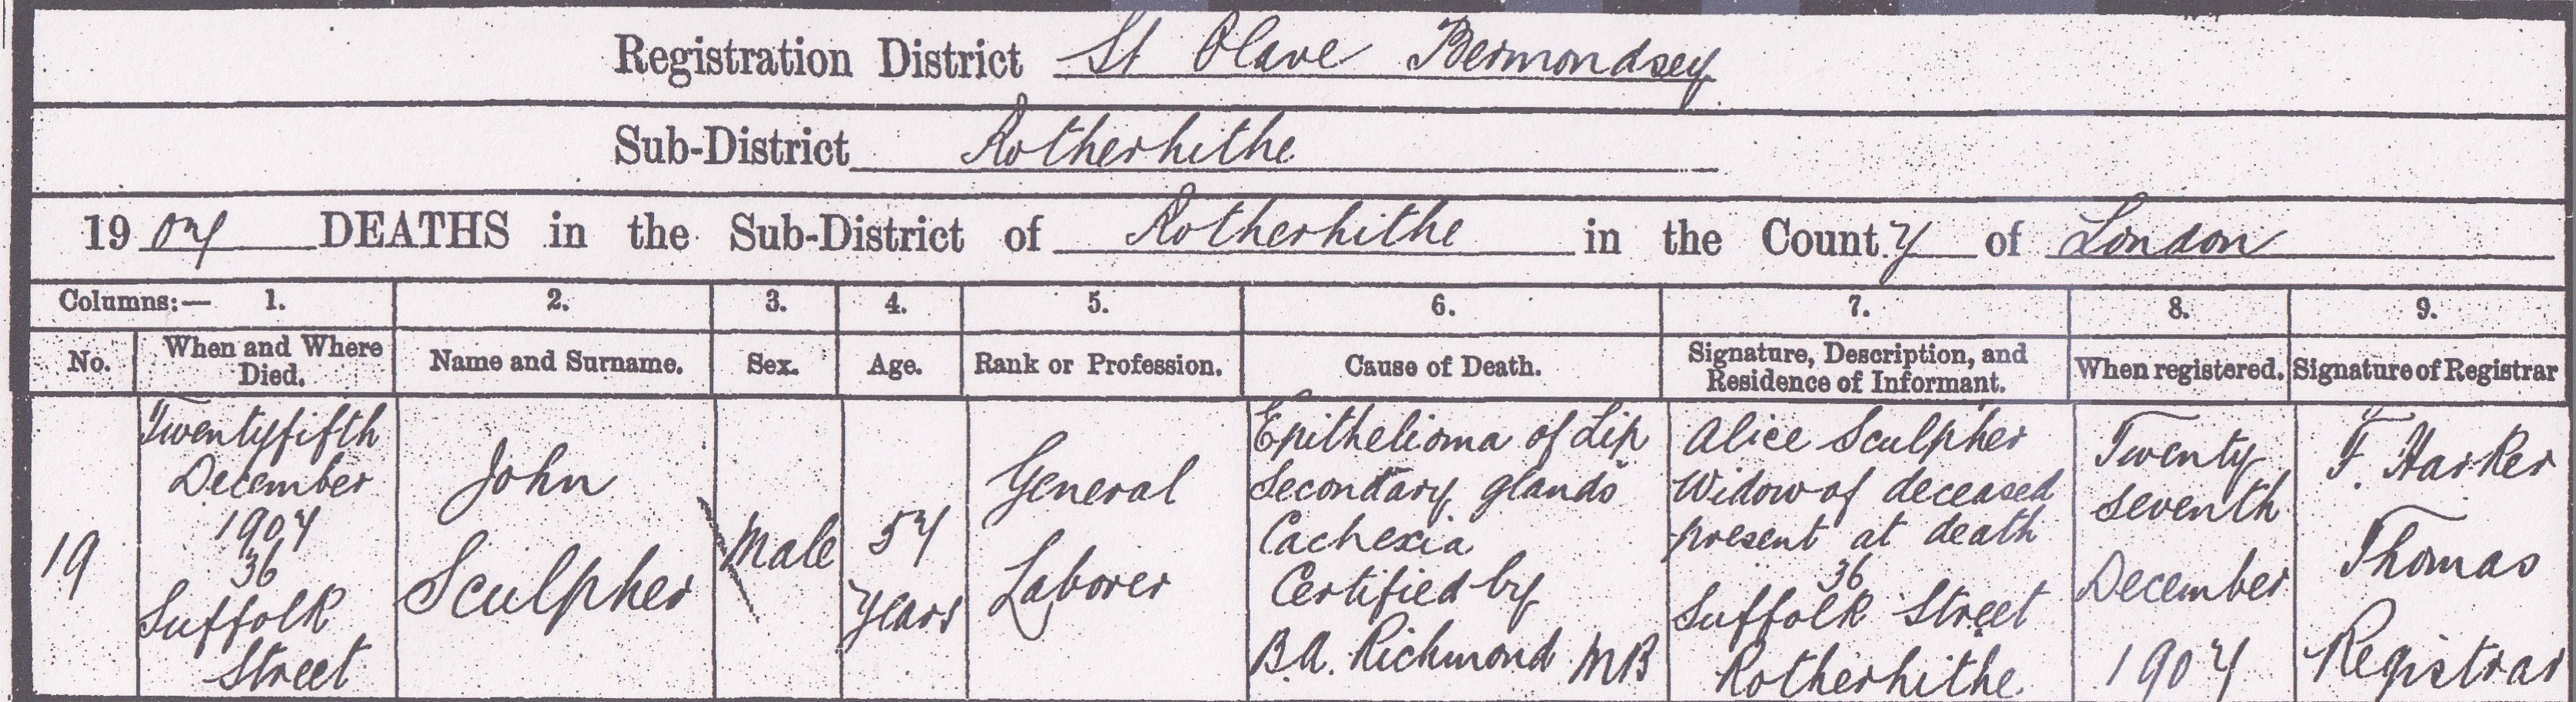 Registration District St Olave Bermondsey
Sub-District Rotherhithe
1904 DEATHS in the Sub-District of Rotherhithe in the County of London
Columns:— 1. 2. 3. 4. 5. 6. 7. 8. 9.
No.
When and Where
Died.
Name and Surname.
Sex.
Age.
Rank or Profession.
Cause of Death.
Signature, Description, and
Residence of Informant.
When registered.
Signature of Registrar
19
Twentyfifth
December
1904
36
Suffolk
Street
John
Sculpher
Male
54
years
General
Laborer
Epithelioma of Lip
Secondary glands
Cachexia
Certified by
B.A. Richmond MB
Alice Sculpher
Widow of deceased
present at death
36
Suffolk Street
Rotherhithe
Twenty
seventh
December
1904
F. Harker
Thomas
Registrar